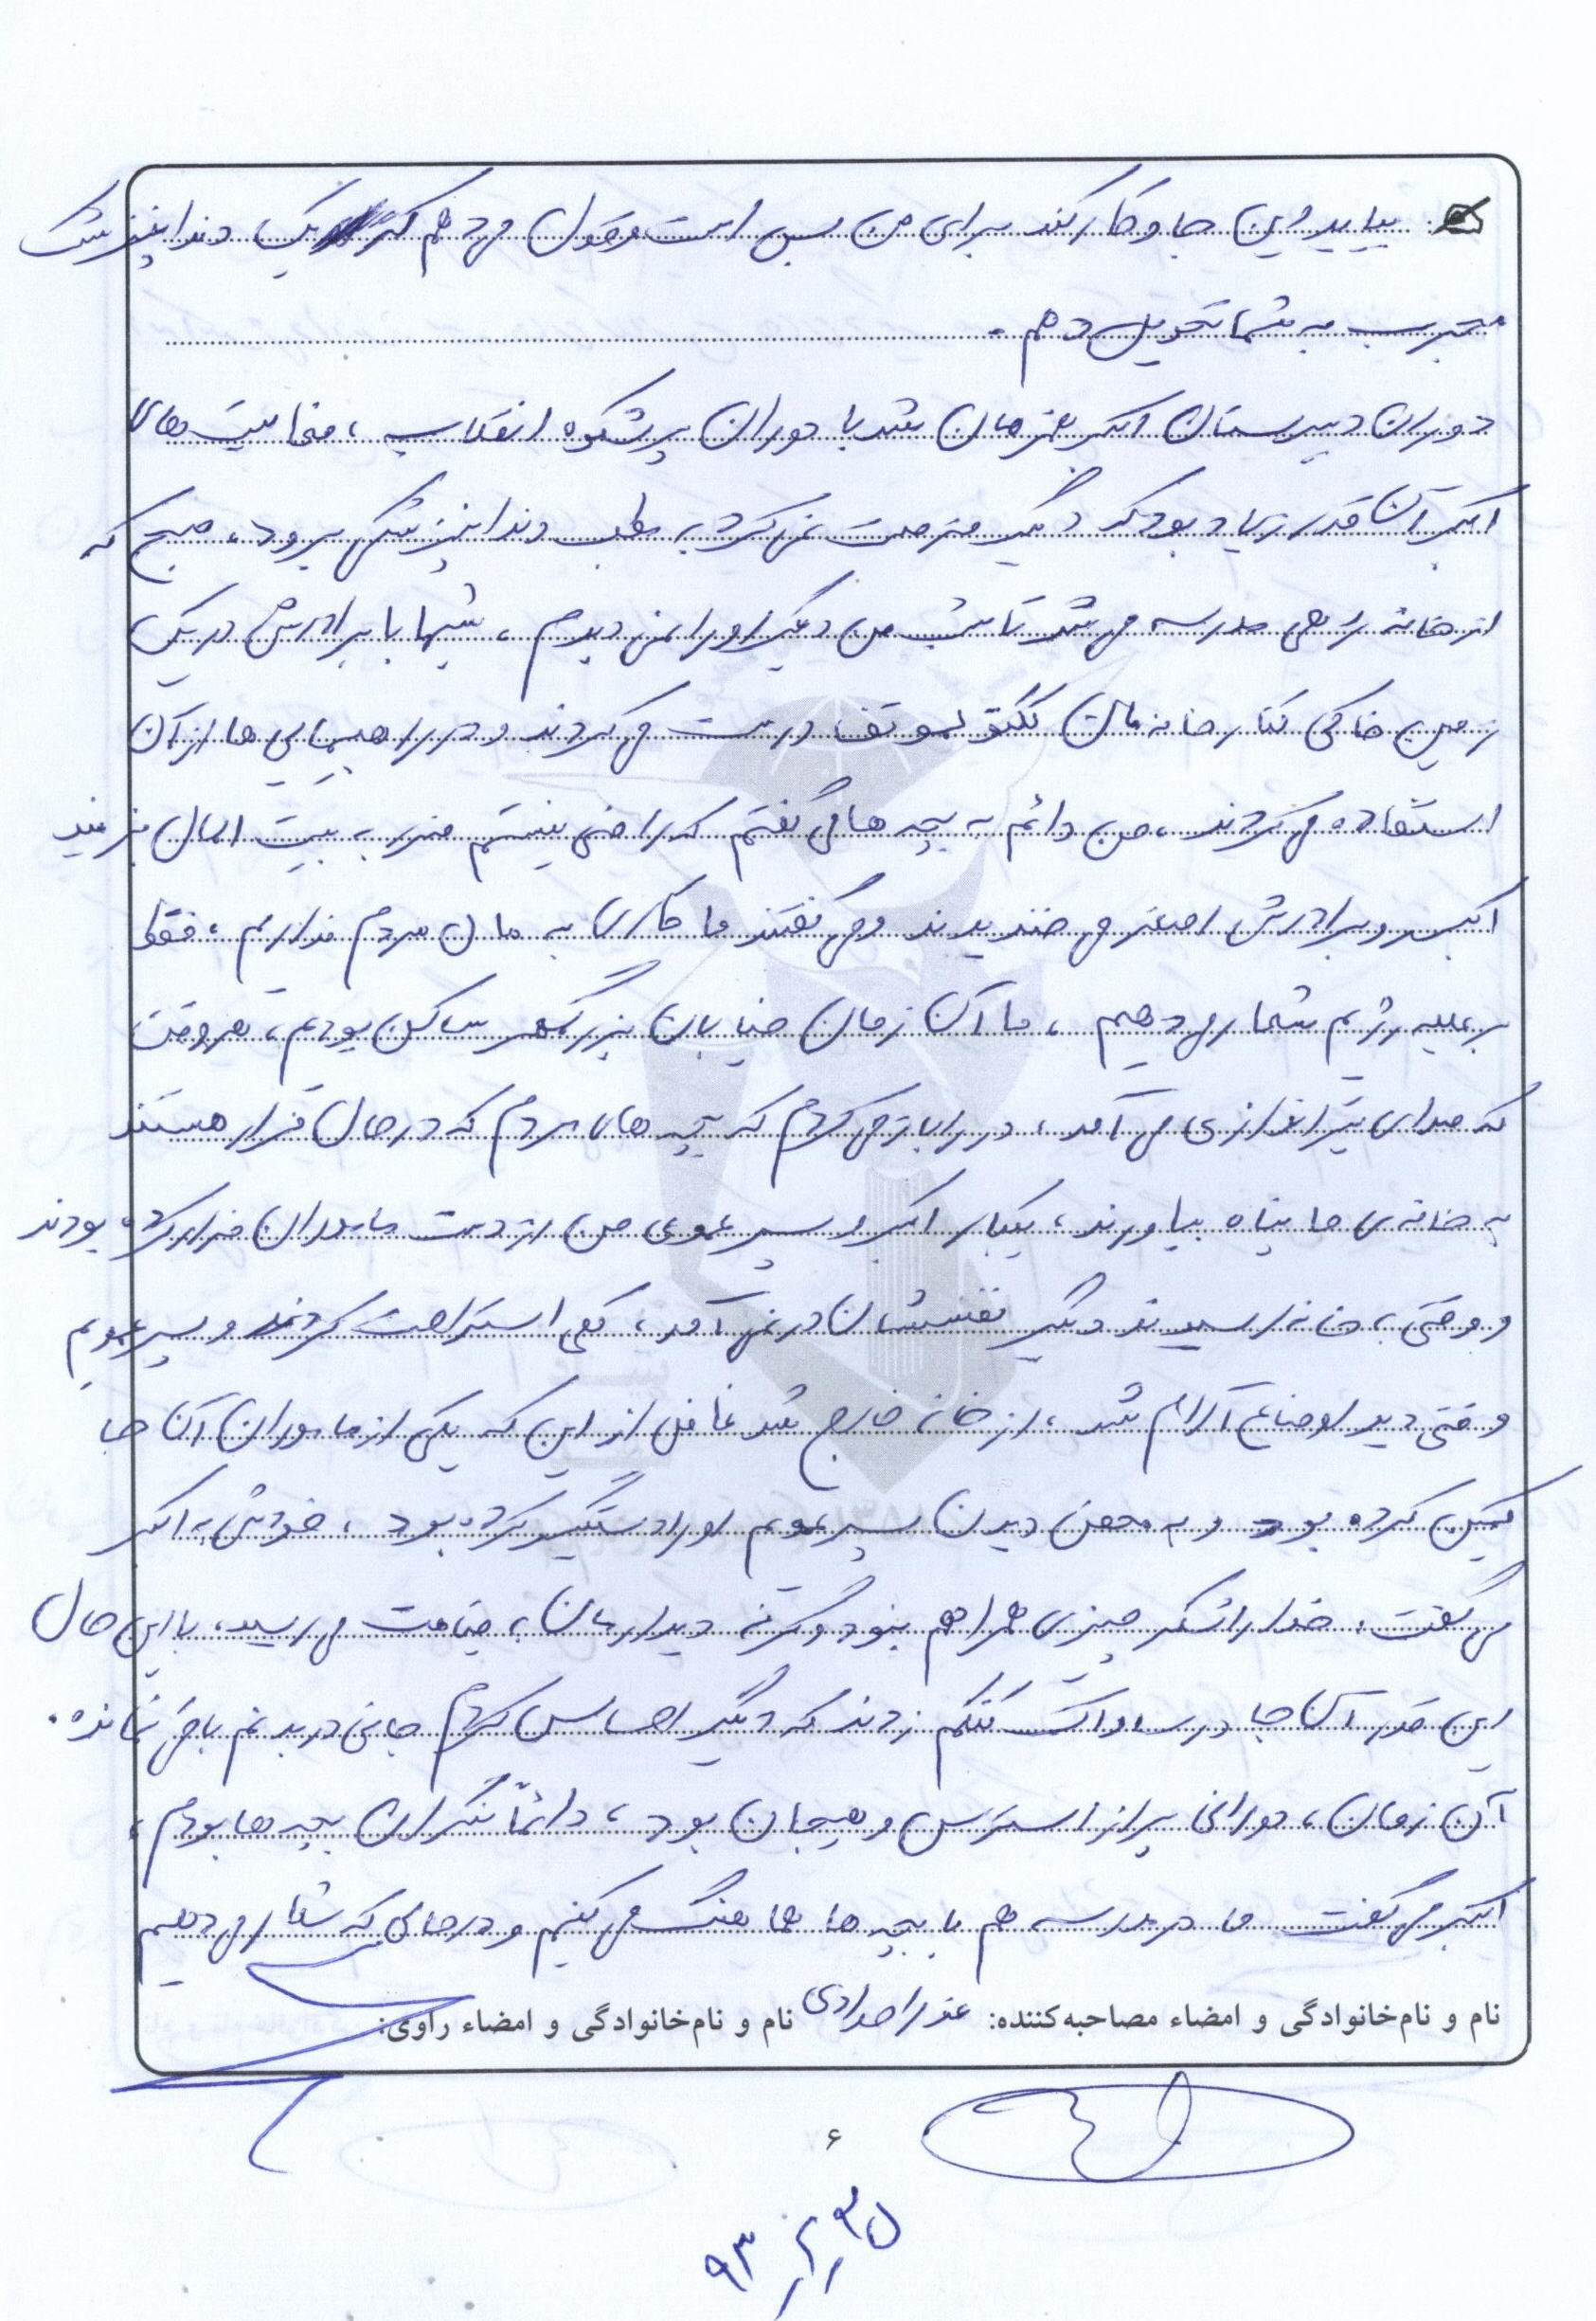 بیاید این جا و کار کند برای من بس است و قول می دهم که یک دندانپزشک
مجرب به شما تحویل دهم.
دوران دبیرستان اکبر همزمان شد با دوران پرشکوه انقلاب، فعالیت های
اکبر آن قدر زیاد بود که دیگر فرصت نمی کرد به مطب دندانپزشکی برود، صبح که
از خانه راهی مدرسه می شد تا شب من دیگر او را نمی دیدم، شبها با برادرش در یک
زمین خاکی کنار خانه مان ککتو لموتف درست می کردند و در راهپیمایی ها از آن
استفاده می کردند، من دائم به بچه ها می گفتم که راضی نیستم ضرر به بیت المال بزنید
اکبر و برادرش اصغر می خندیدند و می گفتند ما کاری به مال مردم نداریم، فقط
بر علیه رژیم شعار می دهیم، ما آن زمان خیابان بزرگمهر ساکن بودیم، هر وقت
که صدای تیراندازی می آمد، در را باز می کردم که بچه های مردم که در حال فرار هستند
به خانه ی ما پناه بیاورند، یکبار اکبر و پسر عموی من از دست ماموران فرار کرده بودند
و وقتی به خانه رسیدند دیگر نفسشان در نمی آمد، کمی استراحت کردند و پسر عمویم
وقتی دید اوضاع آرام شد، از خانه خارج شد غافل از این که یکی از ماموران آن جا
کمین کرده بود و به محض دیدن پسر عمویم او را دستگیر کرده بود، خودش به اکبر
می گفت: خدا را شکر چیزی همراهم نبود وگرنه دیدارمان به قیامت می رسید، با این حال
این قدر آن جا در ساواک کتکم زدند که دیگر احساس کردم جانی در بدنم باقی نمانده.
آن زمان، دورانی پر از استرس و هیجان بود، دائماً نگران بچه ها بودم،
اکبر می گفت ما در مدرسه هم با بچه ها هماهنگ می کنیم و در حالی که شعار می دهیم
نام و نام‌خانوادگی و امضاء مصاحبه‌کننده: عذرا صرادی نام و نام‌خانوادگی و امضاء راوی:
۶